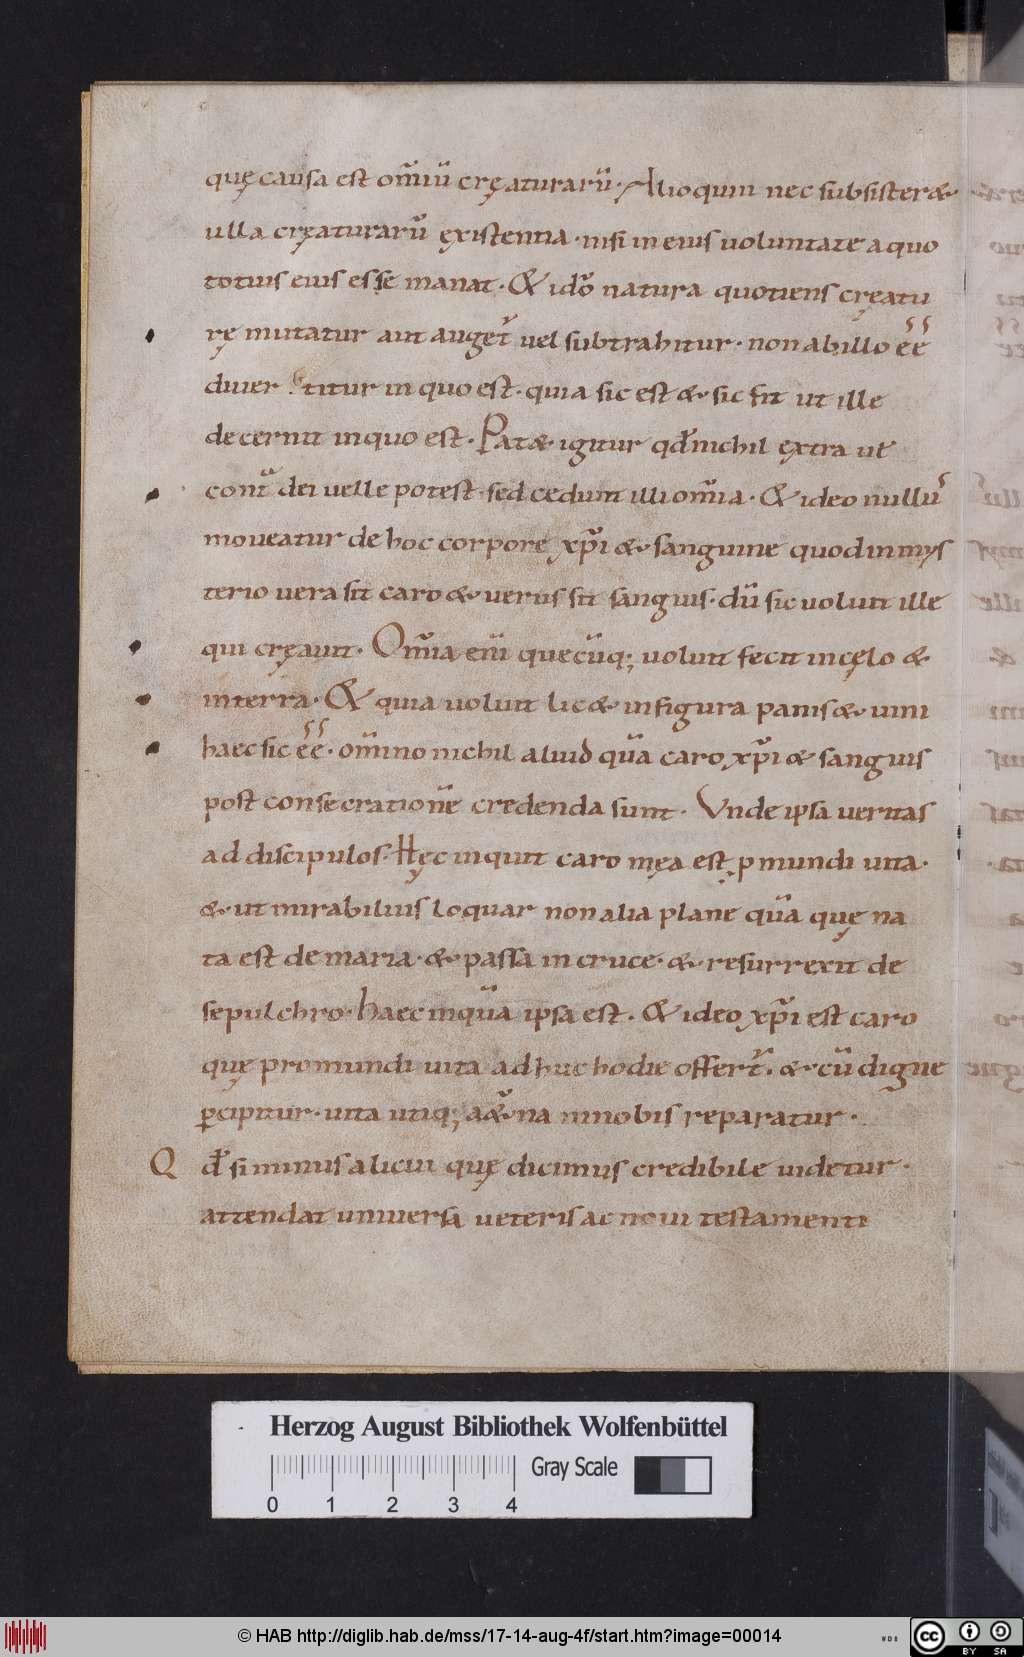 quę causa est om̅iu̅ cręaturaru̅. Alioquin nec subsister&
ulla cręaturaru̅ ęxistentia. nisi in eius voluntate a quo
totius eius esse manat. & ido̅ natura quotiens cręatu
rę mutatur aut auget̅ vel subtrahitur. non ab illo e͛e͛
diver titur in quo est. quia sic est &. sic fit ut ille
decernit in quo est. Pat& igitur qd̅ nichil ęxtra ut̅
cont̅ᵃ dei uelle potest. sed cedunt illi om̅ia. & ideo nullu͛
moveatur de hoc corpore xp̅i & sanguine quod in mys
terio vera sit caro & verus sit sanguis. du̅ sic voluit ille
qui cręauit. Om̅ia eni̅ quecu̅q; voluit fecit in cęlo &
in terra. & quia uoluit lic& in figura panis & uini
haec sic e͛e͛. om̅ino nichil aliud qua̅ caro xp̅i & sanguis
post consecratione̅ credenda sunt. Vnde ipsa veritas
ad discipulos. Hęc inquit caro męa est p mundi uita.
& ut mirabilius loquar non alia plane qua̅ quę na
ta est de maria. & passa in cruce. & resurrexit de
sepulchro. haec inqua̅ ipsa est. & ideo xp̅i est caro
quę pro mundi uita adhuc hodie offert̅. & cu̅ digne
p̱cipitur. uita utiq; a&̅na in nobis reparatur.
Qd̅ si minus alicui quę dicimus credibile videtur.
attendat universa veteris ac noui testamenti
Herzog August Bibliothek Wolfenbüttel
Gray Scale
0 1 2 3 4
© HAB http://diglib.hab.de/mss/17-14-aug-4f/start.htm?image=00014
WDB
cc
BY SA